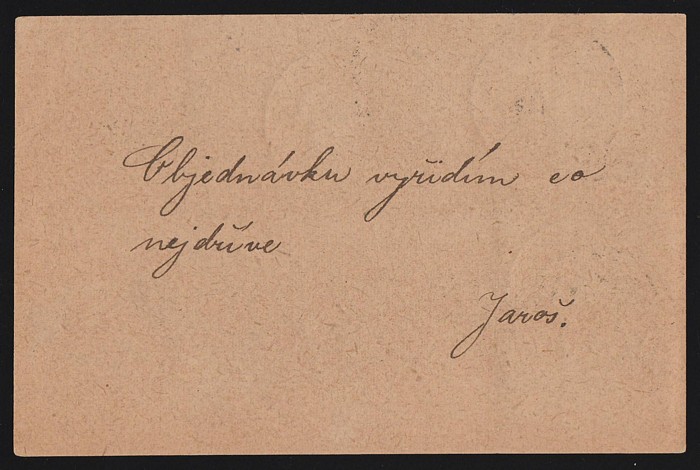 Objednávku vyřídím co
nejdříve
Jaroš.